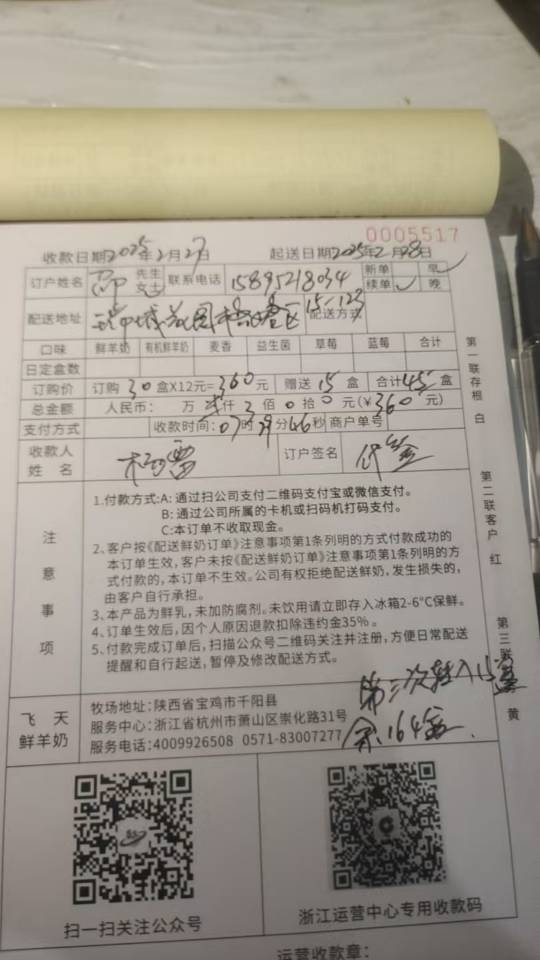 0005517
收款日期2025年2月27日 起送日期2025年2月28日
订户姓名 邵 先生 女士 联系电话 15895218034 新单 早✓
续单✓ 晚
配送地址 区15-123 配送方式
口味 鲜羊奶 有机鲜羊奶 麦香 益生菌 草莓 蓝莓 合计
日定盒数
订购价 订购 30 盒X12元=360元 赠送 15 盒 合计45盒
总金额 人民币: 万 仟 3 佰 0 拾 0 元(¥360元)
支付方式 收款时间: 07时 分46秒 商户单号
收款人 姓名 订户签名 代签
注意事项
1.付款方式:A: 通过扫公司支付二维码支付宝或微信支付。
B: 通过公司所属的卡机或扫码机打码支付。
C:本订单不收取现金。
2、客户按《配送鲜奶订单》注意事项第1条列明的方式付款成功的
本订单生效,客户未按《配送鲜奶订单》注意事项第1条列明的方
式付款的,本订单不生效。公司有权拒绝配送鲜奶,发生损失的,
由客户自行承担。
3、本产品为鲜乳,未加防腐剂。未饮用请立即存入冰箱2-6°C保鲜。
4、订单生效后,因个人原因退款扣除违约金35%。
5、付款完成订单后,扫描公众号二维码关注并注册,方便日常配送
提醒和自行起送,暂停及修改配送方式。
第一联存根 白
第二联客户 红
第三联 黄
飞天
鲜羊奶
牧场地址:陕西省宝鸡市千阳县
服务中心:浙江省杭州市萧山区崇化路31号
服务电话:4009926508 0571-83007277
第三次转入15盒
余164盒
扫一扫关注公众号
浙江运营中心专用收款码
运营收款章: